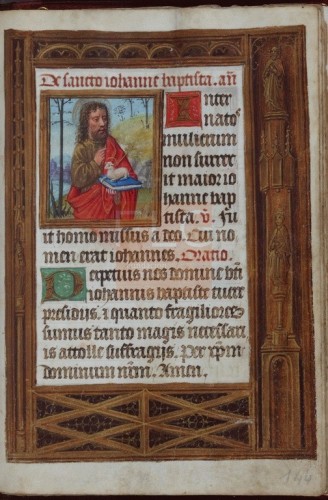 De sancto iohanne baptista. añ
Inter
natos
mulierum
non surrex
it maior io
hanne bap
tista. v̇. Fu
it homo missus a deo. Cui no
men erat iohannes. Oratio.
iohannis baptiste tuere
presidijs. i quanto fragiliores
sumus tanto magis necessari
is attolle suffragijs. Per xp̃m
dominum nr̃m. Amen.
144